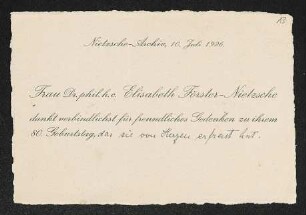 13
Nietzsche-Archiv, 10. Juli 1926.
Frau Dr. phil. h. c. Elisabeth Förster-Nietzsche
dankt verbindlichst für freundliches Gedenken zu ihrem
80. Geburtstag, das sie von Herzen erfreut hat.